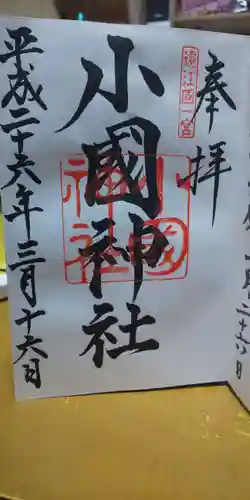 奉拝
遠江國一宮
小國神社
小國神社
平成二十六年三月十六日